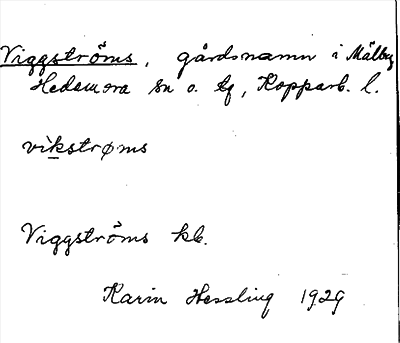 Viggströms, gårdsnamn i Mälby
Hedemora sn o. tg, Kopparb. l.
vikstrøms
Viggströms kb.
Karin Hessling 1929